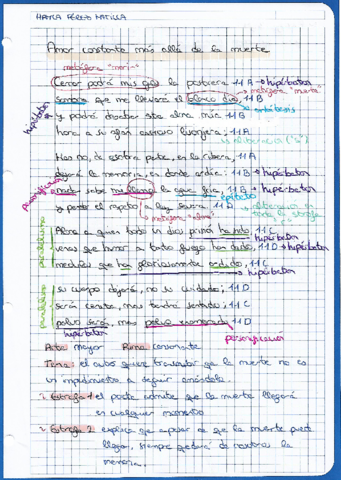 MARTA PÉREZ MATILLA
Amor constante más allá de la muerte
metáfora "morir"
Cerrar podrá mis ojos la postrera 11A → hipérbaton
metáfora "muerte"
sombra que me llevará el blanco día, 11B
hipérbaton → antítesis
y podrá desatar esta alma mía 11B
hora a su afán ansioso lisonjera; 11A
→ aliteración ("s")
Mas no, de esotra parte, en la ribera, 11A
dejará la memoria, en donde ardía: 11B → hipérbaton
personificación
nadar sabe mi llama la agua fría, 11B → hipérbaton
epíteto
y perder el respeto a ley severa. 11A
metáfora "alma"
aliteración en toda la estrofa
Alma a quien todo un dios prisión ha sido, 11C
hipérbaton
venas que humor a tanto fuego han dado, 11D → hipérbaton
medulas que han gloriosamente ardido, 11C
hipérbaton
paralelismo
su cuerpo dejará, no su cuidado; 11D
serán ceniza, mas tendrá sentido; 11C
polvo serán, mas polvo enamorado. 11D
paralelismo
hipérbaton
personificación
Arte mayor Rima consonante
Tema: el autor quiere transmitir que la muerte no es
un impedimento a seguir amándola.
Estrofa 1 el poeta admite que la muerte llegará
en cualquier momento
Estrofa 2 explica que a pesar de que la muerte puede
llegar, siempre quedará de nosotros la
memoria.